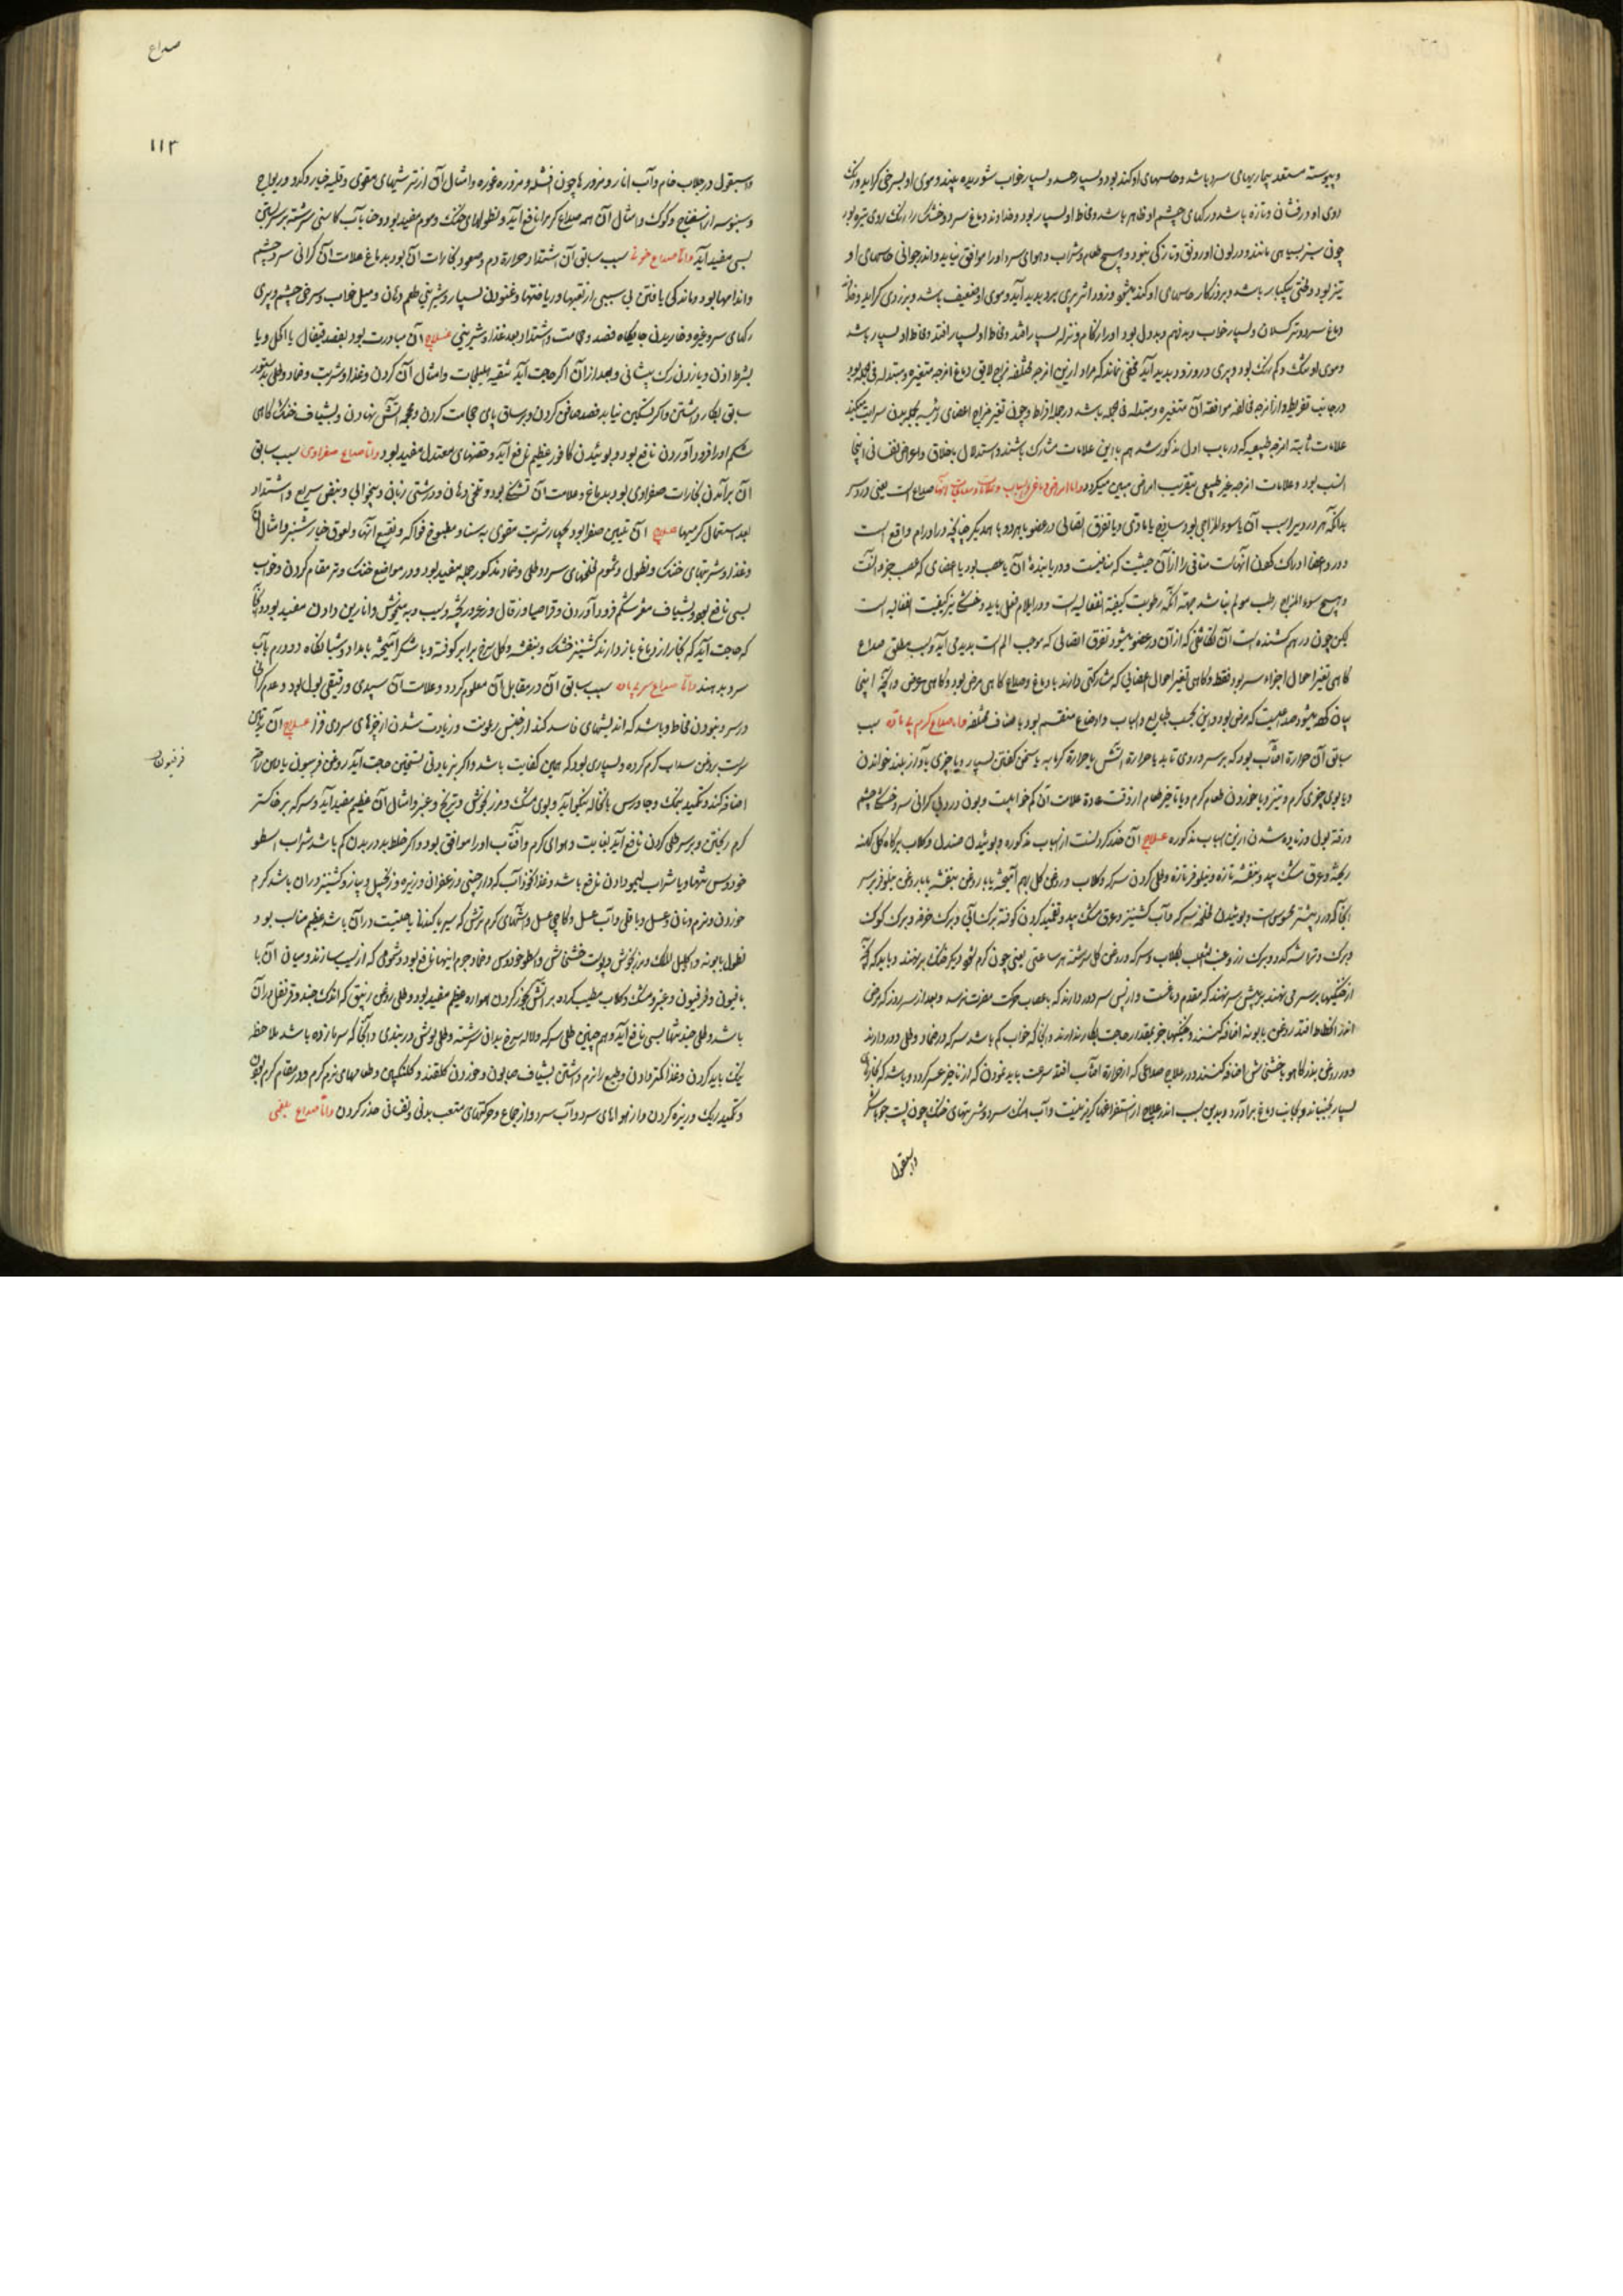 و پیوسته مستعد بیماریهای سرد باشد و حاسهای او کند بود و بسیار خواب شوریده بیند و موی او بسرخی گراید و رنگ
روی او درفشان و تازه باشد و رگهای چشم او ظاهر باشد و مخاط او بسیار بود و خداوند دماغ سرد و خشک را رنگ روی تیره بود
چون سبز بسیاهی مانند و در لون او رونق و تازگی نبود و هیچ طعام و شراب و هوای سرد او را موافق نیاید و اندر جوانی حاسهای او
تیز بود و بختی سبکبار باشد و بروزگار حاسهای او کند میشود و زود اثر پیری برو پدید آید و موی او ضعیف باشد و بزردی گراید و خداوند
دماغ سرد و تر کسلان و بسیار خواب و بدفهم و بددل بود و او را زکام و نزله بسیار افتد و مخاط او بسیار باشد
و موی او تنک و کم رنگ بود و پیری درو زود پدید آید مخفی نماند که مراد ازین امزجه مختلفه مزاج لایق دماغ امزجه متغیره و متبدله فی الجمله بود
در جانب تفریط و از امزجه مخالفه موافقه آن متغیره و متبدله فی الجمله باشد در جمله افراط و چون تغیر مزاج اعضای رئیسه بجمله بدن سرایت میکند
علامات ثابته امزجه طبیعیه که در باب اول مذکور شد هم با این علامات مشارک باشند و استدلال باخلاق و اعراض نفسانی اینجا
انسب بود و علامات امزجه غیر طبیعی بتقریب امراض مبین میگردد و اما امراض دماغی و اسباب و علامات و معالجات آنها صداع است یعنی درد سر
بدانکه هر درد سر را سبب آن یا سوء المزاجی بود ساذج یا مادی و یا تفرق اتصالی در عضو یا هر دو با همدیگر چنانچه در اورام واقع است
و درد اعضا ادراک کردن آنهاست منافی را از آن حیثیت که منافیست و دریابنده آن یا عصب بود یا اعضای که عصب جزو آنست
و هیچ سوء المزاج رطب مولم نباشد جهة آنکه رطوبت کیفیة انفعالیه است و در ایلام فعل باید و خشکی نیز کیفیت انفعالیه است
لیکن چون درهم کشنده است آن تقاضا که از آن در عضو میشود تفرق اتصالی که موجب الم است پدید می آید و سبب مطلق صداع
گاهی تغیر احوال اجزاء سر بود فقط و گاهی تغیر احوال اعضایی که مشارکتی دارند با دماغ و صداع گاهی مرض بود و گاهی عرض و آنچه اینجا
بیان کرده میشود صداعیست که مرض بود و این بحسب طبایع و اسباب و اوضاع منقسم بود باصناف مختلفه و اما صداع گرم بی ماده سبب
سابق آن حرارة آفتاب بود که بر سر و روی تابد یا حرارة آتش یا حرارة گرمابه یا سخن گفتن بسیار و یا چیزی بآواز بلند خواندن
و یا بوی چیزی گرم و تیز و یا خوردن طعام گرم و یا تاخیر طعام از وقت عادة علامات آن کم خوابیست و بودن درد بی گرانی سر و خشکی چشم
و رقة بول و زیاده شدن ازین اسباب مذکوره علاج آن حذر کردنست از اسباب مذکوره و بوئیدن صندل و گلاب بر کاه گل کهنه
ریخته و عرق مشک بید و بنفشه تازه و نیلوفر تازه و طلی کردن سرکه و گلاب و روغن گل بهم آمیخته یا با روغن بنفشه یا با روغن نیلوفر بر سر
آنجا که درد بیشتر محسوس است و بوئیدن لخلخه سرکه و آب کشنیز و عرق مشک بید و تضمید کردن کوفته برگ آبی و برگ خرفه و برگ کوک
و برگ و تراشه کدو و برگ رز و عنب الثعلب بگلاب و سرکه و روغن گل سرشته هر ساعتی یعنی چون گرم شود دیگر خنک بر نهند و باید که آنچه
از خنکیها بر سر می نهند بر پیش سر نهند که مقدم دماغست و از پس سر دور دارند که باعصاب حرکت مضرت نرسد و بعد از سه روز که مرض
اندر انحطاط افتد روغن بابونه اضافه کنند و خنکیها جز بمقدار حاجت بکار ندارند و آنجا که خواب کم باشد سرکه در ضماد و طلی دور دارند
و در روغن بذر کاهو یا خشخاش اضافه کنند و در علاج صداعی که از حرارة آفتاب افتد سرعت باید نمودن که از تاخیر عسر گردد و باشد که بخارات
بسیار بجنباند و بجانب دماغ برآورد و بدین سبب اندر علاج از استفراغها گریز نیست و آب خنک سرد و شربتهای خنک چون پست جو با شکر
واسبغول
صداع
۱۱۳
واسبغول در جلاب خام و آب انار و مزورها چون افشله و مزوره غوره و امثال آن از ترشیهای مقوی و قلیه خیار و کدو و ریواج
و سنبوسه از اسفناج و کوک و امثال آن همه صداع گرم را نافع آید و نطولهای خنک و موم مفید بود و حنا بآب کاسنی سرشته بر سر بستن
بسی مفید آید و اما صداع خونی سبب سابق آن اشتداد حرارة دم و صعود بخارات آن بود بدماغ علامات آن گرانی سر و چشم
و اندامها بود و ماندگی یافتن بی سببی از تعبها و ریاضتها و غنودن بسیار و شیرینی طعم دهان و میل خواب و سرخی چشم و پری
رگهای سر و غیره و خاریدن جایگاه فصد و حجامت و اشتداد بعد غذا و شیرینی علاج آن مبادرت بود بفصد قیفال یا اکحل و یا
بشرط اذن و یا زدن رگ پیشانی و بعد از آن اگر حاجت آید تنقیه بهلیلجات و امثال آن کردن و غذا و شربت و ضماد و طلی بدستور
سابق بکار داشتن و اگر تسکین نیابد فصد صافن کردن و بر ساق پای حجامت کردن و محجمه آتش نهادن و بشیاف خنک گاهی
شکم او را فرود آوردن نافع بود و بوئیدن کافور عظیم نافع آید و حقنهای معتدل مفید بود و اما صداع صفراوی سبب سابق
آن برآمدن بخارات صفراوی بود بدماغ و علامات آن تشنگی بود و تلخی دهان و درشتی زبان و بیخوابی و نبض سریع و اشتداد
بعد استعمال گرمیها علاج آن تلیین صفرا بود بچهار شربت مقوی به سنا و مطبوخ فواکه و نقیع آنها و لعوق خیار شنبر و امثال آن
و غذا و شربتهای خنک و نطول و شموم لخلخهای سرد و طلی و ضماد مذکور جمله مفید بود و در مواضع خنک و تر مقام کردن و خواب
بسی نافع بود و بشیاف مغز شکم فرود آوردن و قراصیا و زغال و زعرور پخته و سیب و به میخوش و انارین دادن مفید بود و آنجا
که حاجت آید که بخار از دماغ باز دارند کشنیز خشک و بنفشه و گل سرخ برابر کوفته و با شکر آمیخته بامداد و شبانگاه دو درم بآب
سرد بدهند و اما صداع سرد بی ماده سبب سابق آن در مقابل آن معلوم گردد و علامات آن سپیدی و رقیقی بول بود و عدم گرانی
در سر و نبودن مخاط و باشد که اندیشهای فاسد کند از جنس رعونت و زیادت شدن از چیزهای سردی فزا علاج آن
سرست بروغن سداب گرم کرده و بسیاری بود که همین کفایت باشد و اگر بزیادتی تسخین حاجت آید روغن فرسیون با این
اضافه کنند و تکمید بنمک و جاورس با نخاله نیکو آید و بوی مشک و مرزنجوش و ترنج و عنبر و امثال آن عظیم مفید آید و سرکه بر خاکستر
گرم ریختن و بر سر طلی کردن نافع آید بغایت و هوای گرم و آفتاب او را موافق بود و اگر خلط بد در بدن کم باشد شراب اسطو
خودوس تنها و یا شراب لیمو دادن نافع باشد و غذا نخودآب که دارچینی و زعفران و زیره و زنجبیل و پیاز و کشنیز در آن باشد گرم
خوردن و نرم و نان و عسل و باقلی و آب عسل و کاچی عسل و آشهای گرم ترش که سیر یا گندنا یا حلتیت در آن باشد عظیم مناسب بود و
نطول بابونه و اکلیل الملک و مرزنجوش و پوست خشخاش و اسطوخودوس و ضماد جرم اینها نافع بود و شمومی که از سیب سازند و میان آن با
بافیون و فرفیون و عنبر و مشک و گلاب مطیب کرده بر آتش بخور کردن همواره عظیم مفید بود و طلی روغن زنبق که اندک جند و قرنفل در آن
باشد و طلی جند تنها بسی نافع آید و هم چنین طلی سرکه و لاله سرخ بدان سرشته و طلی بوش دربندی و آنجا که سرمازده باشد ملاحظه
نیک باید کردن و غذا کمتر دادن و طبع را نرم داشتن بشیاف صابون و خوردن گلقند و گلنگبین و طعامهای نرم گرم و در مقام گرم بودن
و تکمید ریک و زیره کردن و از هواهای سرد و آب سرد و از جماع و حرکتهای متعب بدنی و نفسانی حذر کردن و اما صداع بلغمی
فرفیون